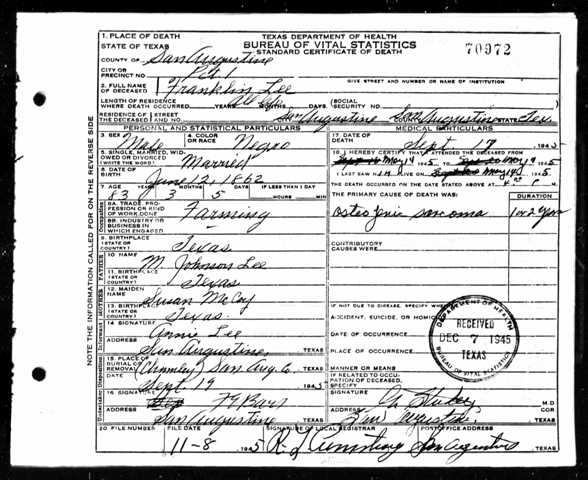 1. PLACE OF DEATH
STATE OF TEXAS
TEXAS DEPARTMENT OF HEALTH
BUREAU OF VITAL STATISTICS
STANDARD CERTIFICATE OF DEATH
70972
COUNTY OF San Augustine
CITY OR PRECINCT NO. Pct 1
GIVE STREET AND NUMBER OR NAME OF INSTITUTION
2. FULL NAME OF DECEASED Franklin Lee
LENGTH OF RESIDENCE WHERE DEATH OCCURRED YEARS MONTHS DAYS (SOCIAL SECURITY NO.
RESIDENCE OF THE DECEASED STREET AND NO. San Augustine San Augustine STATE Tex.
PERSONAL AND STATISTICAL PARTICULARS
3. SEX Male
4. COLOR OR RACE Negro
5. SINGLE, MARRIED, WIDOWED OR DIVORCED (WRITE THE WORD) Married
6. DATE OF BIRTH June 12, 1862
7. AGE YEARS MONTHS DAYS IF LESS THAN 1 DAY
83 3 5 HOURS MIN.
8A. TRADE, PROFESSION OR KIND OF WORK DONE Farming
8B. INDUSTRY OR BUSINESS IN WHICH ENGAGED
9. BIRTHPLACE (STATE OR COUNTRY) Texas
10. NAME M. Johnson Lee
11. BIRTHPLACE (STATE OR COUNTRY) Texas
12. MAIDEN NAME Susan McCoy
13. BIRTHPLACE (STATE OR COUNTRY) Texas.
14. SIGNATURE Annie Lee
ADDRESS San Augustine, TEXAS
15. PLACE OF BURIAL OR REMOVAL San Aug. Co. TEXAS
DATE Sept. 19 1945
16. SIGNATURE
ADDRESS San Augustine TEXAS
MEDICAL PARTICULARS
17. DATE OF DEATH Sept. 17 1945
18. I HEREBY CERTIFY THAT I ATTENDED THE DECEASED FROM
May 1945 TO May 19 1945
I LAST SAW HIM ALIVE ON May 19 1945
THE DEATH OCCURRED ON THE DATE STATED ABOVE AT 4 P M.
THE PRIMARY CAUSE OF DEATH WAS: DURATION
Osteogenic sarcoma 1 or 2 years
CONTRIBUTORY CAUSES WERE:
IF NOT DUE TO DISEASE, SPECIFY WHETHER
ACCIDENT, SUICIDE, OR HOMICIDE
DATE OF OCCURRENCE
PLACE OF OCCURRENCE
MANNER OR MEANS
IF RELATED TO OCCUPATION OF DECEASED, SPECIFY
DEPARTMENT OF HEALTH
RECEIVED
DEC 7 1945
TEXAS
BUREAU OF VITAL STATISTICS
SIGNATURE M.D.
ADDRESS San Augustine, TEXAS
20. FILE NUMBER FILE DATE SIGNATURE OF LOCAL REGISTRAR POSTOFFICE ADDRESS
11-8 1945 San Augustine TEXAS
NOTE THE INFORMATION CALLED FOR ON THE REVERSE SIDE